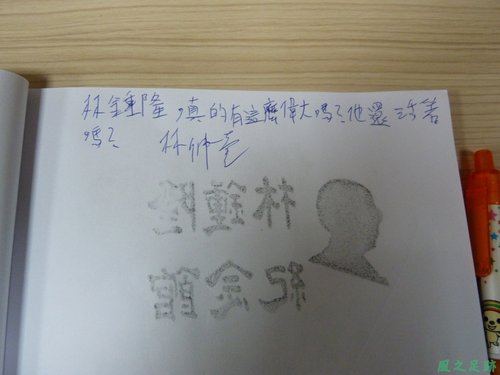 林鍾隆 真的有這麼偉大嗎?他還活著
嗎?  林仲亮
林鍾隆
紀念館
風之足跡